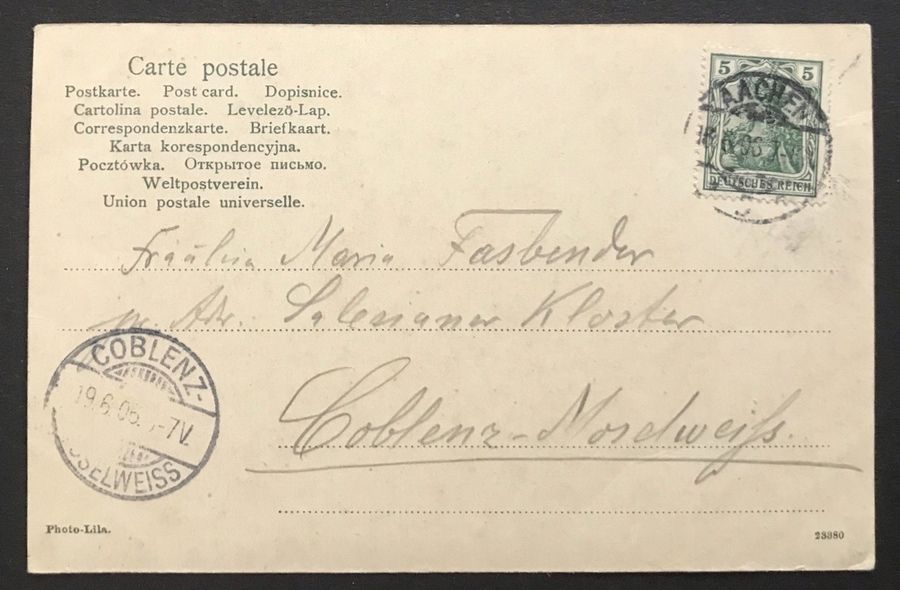 Carte postale
Postkarte. Post card. Dopisnice.
Cartolina postale. Levelező-Lap.
Correspondenzkarte. Briefkaart.
Karta korespondencyjna.
Pocztówka. Открытое письмо.
Weltpostverein.
Union postale universelle.
5 5
AACHEN
DEUTSCHES REICH
Fräulein Maria Fasbender
pr. Adr. Salesianer Kloster
Coblenz-Moselweiss.
COBLENZ-
19.6.05. 6-7V.
OSELWEISS
Photo-Lila.
23380